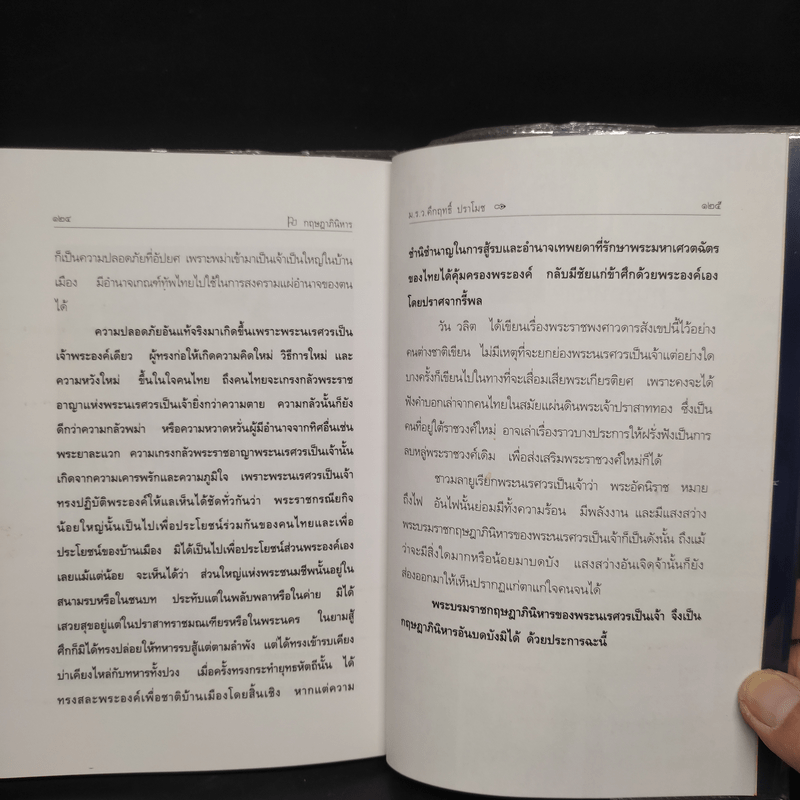 ๑๒๔ กฤษฎาภินิหาร
ก็เป็นความปลอดภัยที่อัปยศ เพราะพม่าเข้ามาเป็นเจ้าเป็นใหญ่ในบ้าน
เมือง มีอำนาจเกณฑ์ทัพไทยไปใช้ในการสงครามแผ่อำนาจของตน
ได้
ความปลอดภัยอันแท้จริงมาเกิดขึ้นเพราะพระนเรศวรเป็น
เจ้าพระองค์เดียว ผู้ทรงก่อให้เกิดความคิดใหม่ วิธีการใหม่ และ
ความหวังใหม่ ขึ้นในใจคนไทย ถึงคนไทยจะเกรงกลัวพระราช
อาญาแห่งพระนเรศวรเป็นเจ้ายิ่งกว่าความตาย ความกลัวนั้นก็ยัง
ดีกว่าความกลัวพม่า หรือความหวาดหวั่นผู้มีอำนาจจากทิศอื่นเช่น
พระยาละแวก ความเกรงกลัวพระราชอาญาพระนเรศวรเป็นเจ้านั้น
เกิดจากความเคารพรักและความภูมิใจ เพราะพระนเรศวรเป็นเจ้า
ทรงปฏิบัติพระองค์ให้แลเห็นได้ชัดทั่วกันว่า พระราชกรณียกิจ
น้อยใหญ่นั้นเป็นไปเพื่อประโยชน์ร่วมกันของคนไทยและเพื่อ
ประโยชน์ของบ้านเมือง มิได้เป็นไปเพื่อประโยชน์ส่วนพระองค์เอง
เลยแม้แต่น้อย จะเห็นได้ว่า ส่วนใหญ่แห่งพระชนมชีพนั้นอยู่ใน
สนามรบหรือในชนบท ประทับแต่ในพลับพลาหรือในค่าย มิได้
เสวยสุขอยู่แต่ในปราสาทราชมณเฑียรหรือในพระนคร ในยามสู้
ศึกก็มิได้ทรงปล่อยให้ทหารรบสู้แต่ตามลำพัง แต่ได้ทรงเข้ารบเคียง
บ่าเคียงไหล่กับทหารทั้งปวง เมื่อครั้งทรงกระทำยุทธหัตถีนั้น ได้
ทรงสละพระองค์เพื่อชาติบ้านเมืองโดยสิ้นเชิง หากแต่ความ
ม.ร.ว.คึกฤทธิ์ ปราโมช ๑๒๕
ชำนิชำนาญในการสู้รบและอำนาจเทพยดาที่รักษาพระมหาเศวตฉัตร
ของไทยได้คุ้มครองพระองค์ กลับมีชัยแก่ข้าศึกด้วยพระองค์เอง
โดยปราศจากรี้พล
วัน วลิต ได้เขียนเรื่องพระราชพงศาวดารสังเขปนี้ไว้อย่าง
คนต่างชาติเขียน ไม่มีเหตุที่จะยกย่องพระนเรศวรเป็นเจ้าแต่อย่างใด
บางครั้งก็เขียนไปในทางที่จะเสื่อมเสียพระเกียรติยศ เพราะคงจะได้
ฟังคำบอกเล่าจากคนไทยในสมัยแผ่นดินพระเจ้าปราสาททอง ซึ่งเป็น
คนที่อยู่ใต้ราชวงศ์ใหม่ อาจเล่าเรื่องราวบางประการให้ฝรั่งฟังเป็นการ
ลบหลู่พระราชวงศ์เดิม เพื่อส่งเสริมพระราชวงศ์ใหม่ก็ได้
ชาวมลายูเรียกพระนเรศวรเป็นเจ้าว่า พระอัคนิราช หมาย
ถึงไฟ อันไฟนั้นย่อมมีทั้งความร้อน มีพลังงาน และมีแสงสว่าง
พระบรมราชกฤษฎาภินิหารของพระนเรศวรเป็นเจ้าก็เป็นดังนั้น ถึงแม้
ว่าจะมีสิ่งใดมากหรือน้อยมาบดบัง แสงสว่างอันเจิดจ้านั้นก็ยัง
ส่องออกมาให้เห็นปรากฏแก่ตาแก่ใจคนจนได้
พระบรมราชกฤษฎาภินิหารของพระนเรศวรเป็นเจ้า จึงเป็น
กฤษฎาภินิหารอันบดบังมิได้ ด้วยประการฉะนี้